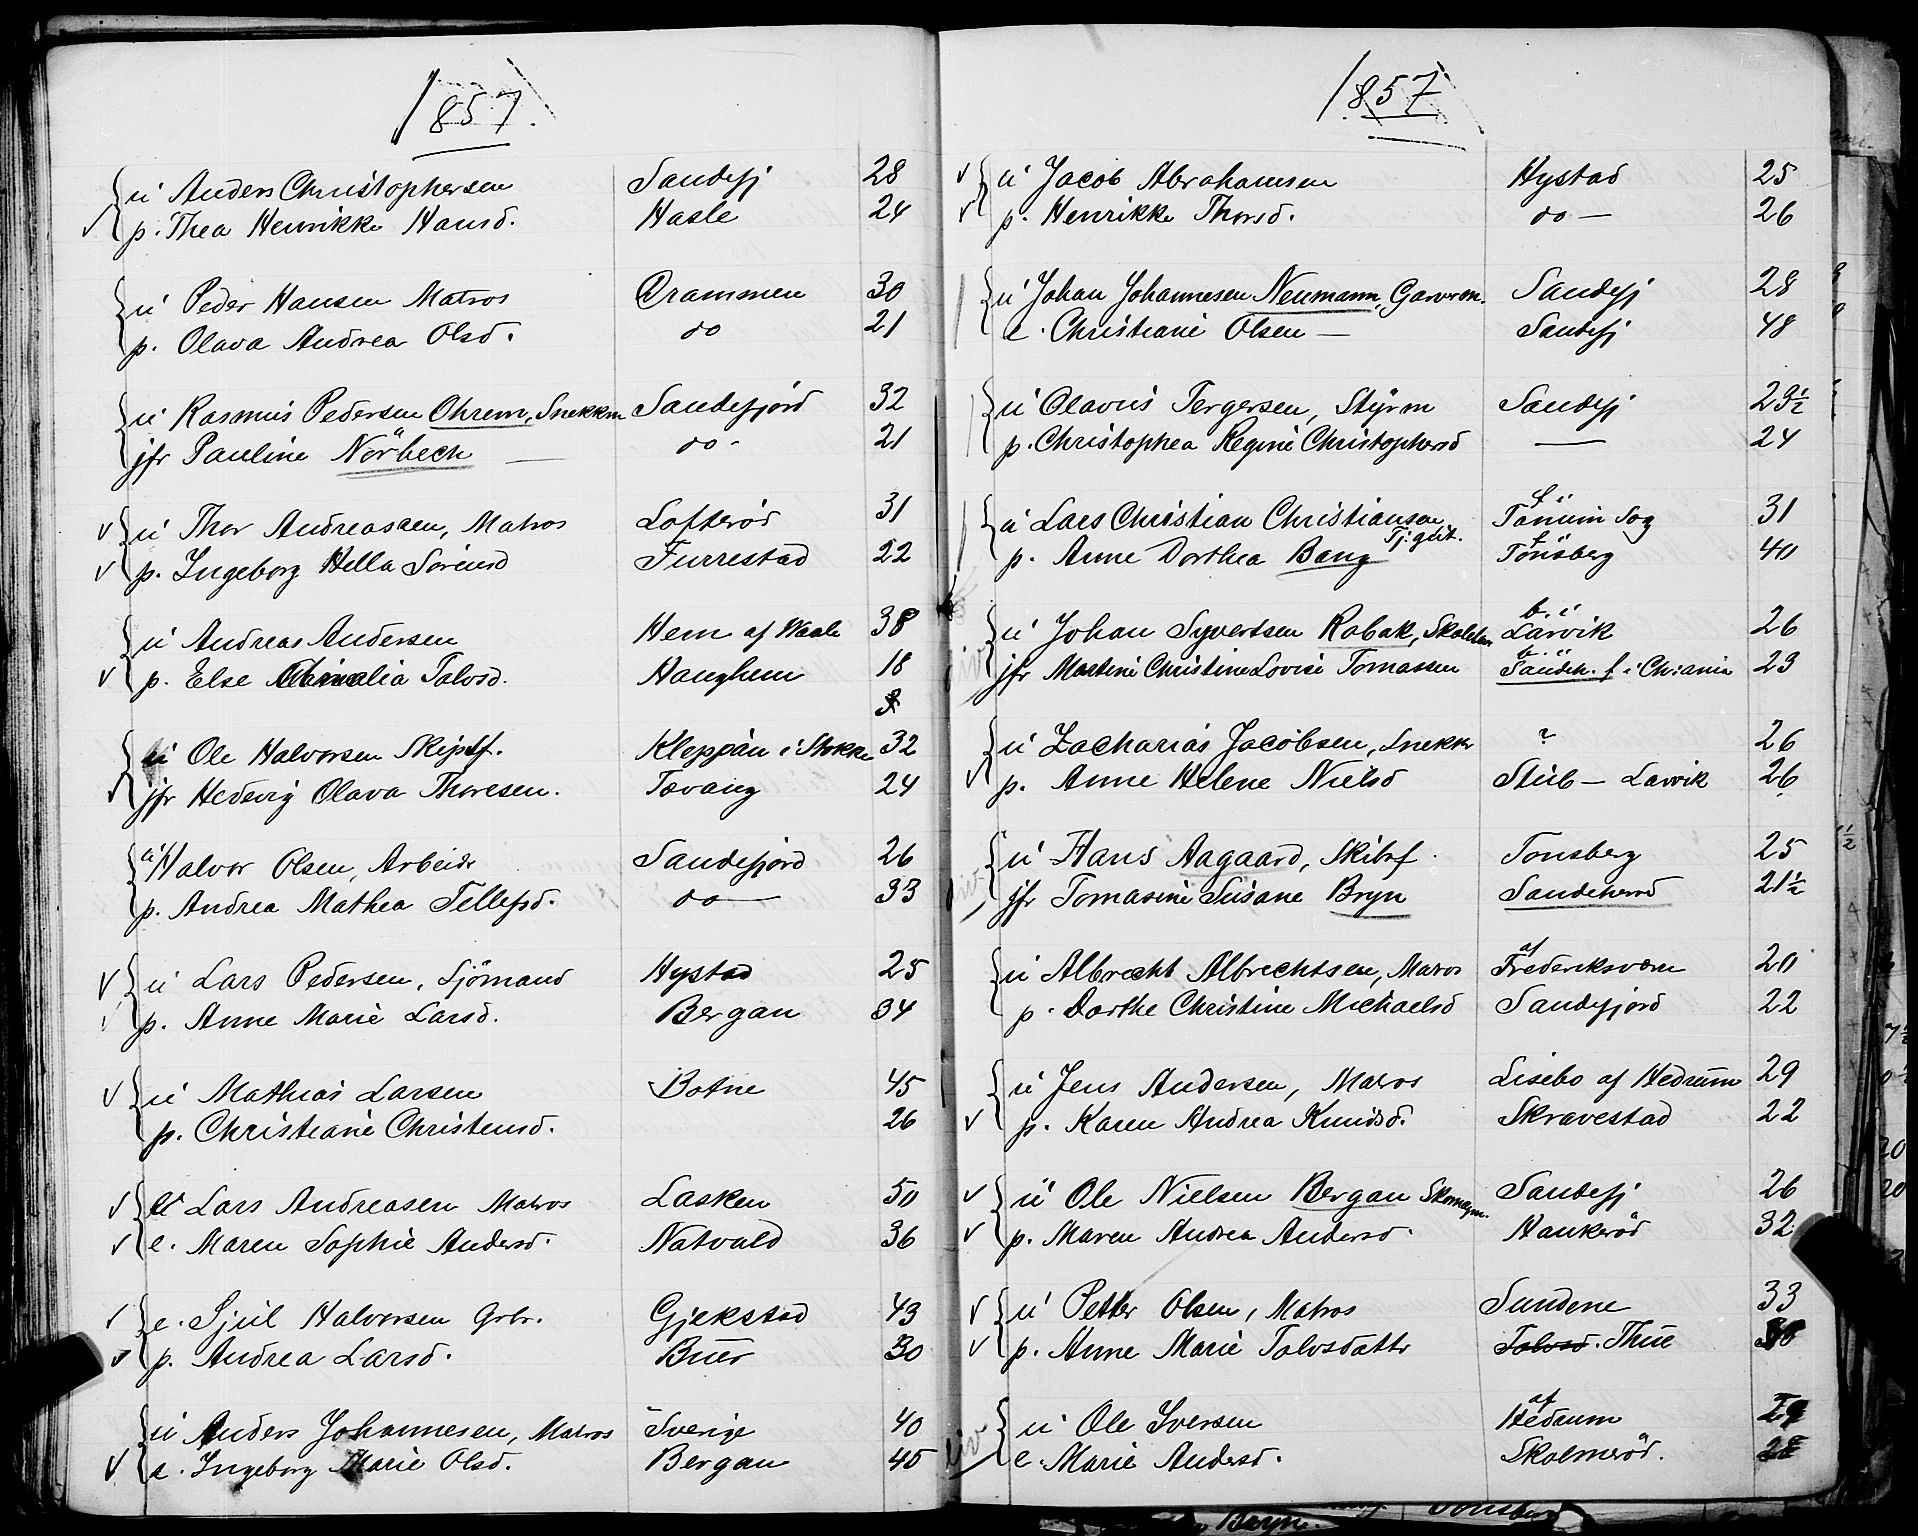 1857.
u Anders Christophersen Sandefj 28
p. Thea Henrikke Hansd. Hasle 24
u Peder Hansen Matros Drammen 30
p. Olava Andrea Olsd. do 21
u Rasmus Pedersen Ohrem, Snekkm Sandefjord 32
jfr Pauline Nörbech — do - 21
u Thor Andreasen, Matros Lofteröd 31
p. Ingeborg Hella Sörensd Furrestad 22
u Andreas Andersen Hem af Waale 38
p. Else Talvsd. Haughem 18
u Ole Halvorsen Skipsf. Kleppan i Stokke 32
jfr Hedevig Olava Thoresen. Tovang 24
u Halvor Olsen, Arbeidr Sandefjord 26
p. Andrea Mathea Tellefsd. do — 33
u Lars Pedersen, Sjömand Hystad 25
p. Anne Marie Larsd. Bergan 34
u Mathias Larsen Botne 45
p. Christiane Christensd. 26
e Lars Andreasen Matros Lasken 50
e. Maren Sophie Andersd. Natvald 36
e. Sjul Halvorsen Grbr. Gjekstad 43
p. Andrea Larsd. Buer 30
u Anders Johannesen, Matros Sverige 40
e. Ingeborg Marie Olsd. Bergan 45
1857
u Jacob Abrahamsen Hystad 25
p. Henrikke Thorsd. do — 26
u Johan Johannesen Neumann, Garverm. Sandefj 28
e. Christiane Olsen — Sandefj 48
u Olavus Tergersen, Styrm Sandefj 23½
p. Christophea Regine Christophersd — 24
u Lars Christian Christiansen Tj.gut. f. i Tanum Sog 31
p. Anne Dorthea Bang f. i Tönsberg 40
u Johan Syvertsen Robak, b. i Larvik 26
jfr Martine Christine Lovise Tomassen b. i Sandeh. f. i Chr:ania 23
u Zacharias Jacobsen, Snekkr ? 26
p. Anne Helene Nielsd Stub — Larvik 26
u Hans Aagaard, Skibsf Tonsberg 25
jfr Tomasine Susane Bryn Sandeherred 21½
u Albrecht Albrechtsen, Matros af Frederiksværn 20
p. Dorthe Christine Michaelsd Sandefjord 22
u Jens Andersen, Matros Lisebo af Hedrum 29
p. Karen Andrea Knudsd. Skravestad 22
u Ole Nielsen Bergan Skomagm. Sandefj 26
p. Maren Andrea Andersd. Haukeröd 32
u Petter Olsen, Matros Sundene 33
p. Anne Marie Talvsdattr Talvsd. Thue
u Ole Iversen af Hedrum 29
e. Marie Andersd. Skolmeröd. 28
Bryn. Tonsberg